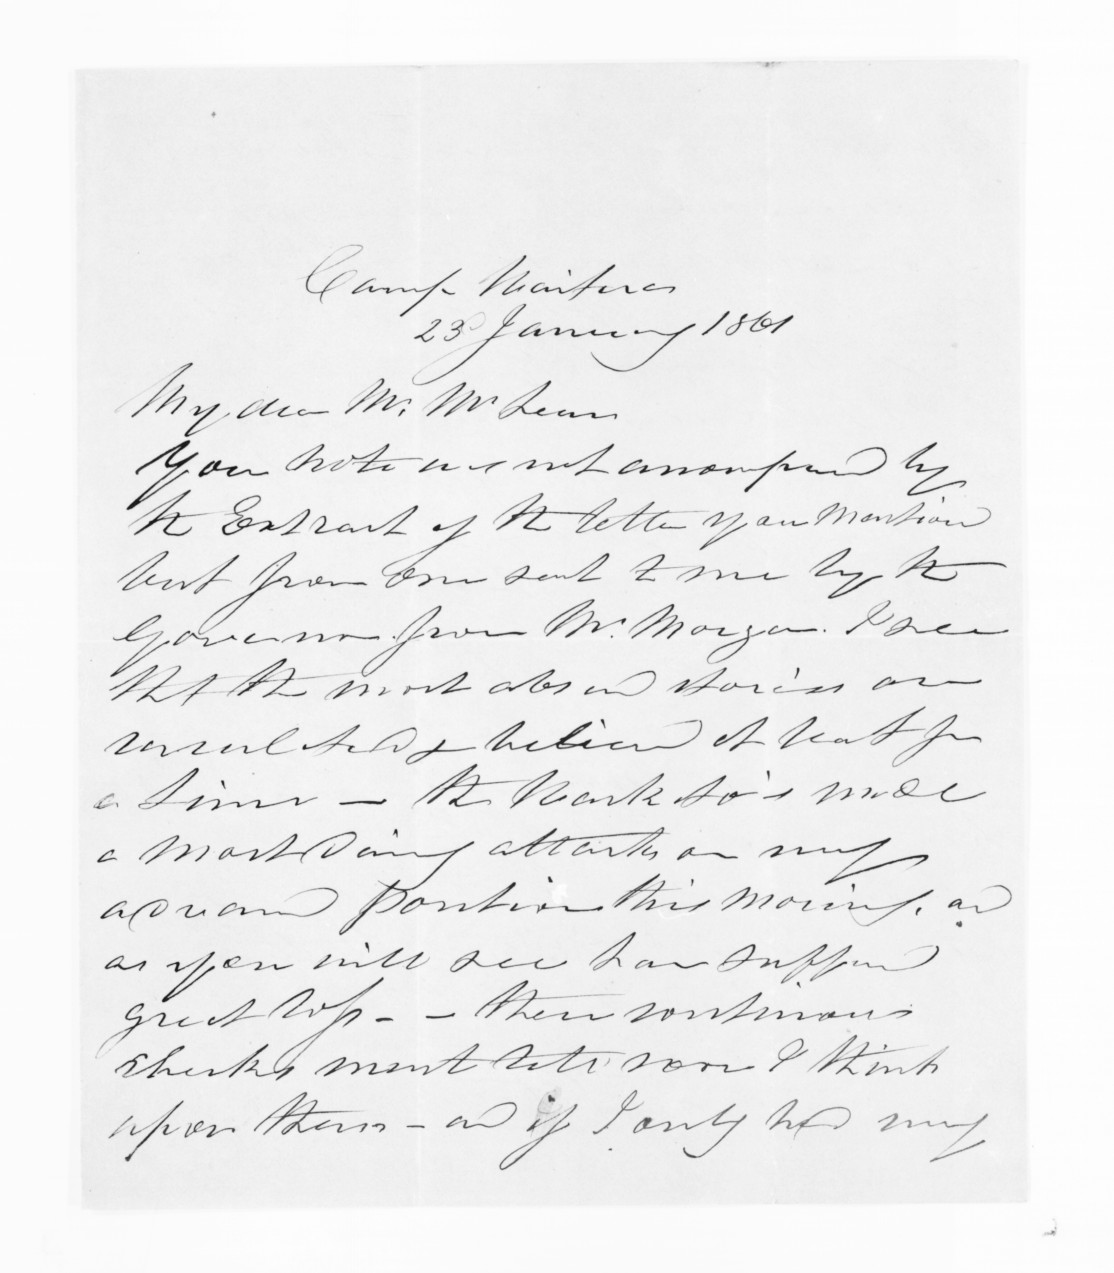 Camp Waitara
23 January 1861
My dear Mr. McLean
Your note was not accompanied by
the Extract of the letter you mention
but from one sent to me by the
Governor from Mr. Morgan. I see
that the most absurd stories are
circulated & believed at least for
a time — the Waikato's made
a most daring attack on my
advanced position this morning, and
as you will see have suffered
great loss - - these continuous
checks must tell soon I think
upon them - and if I only had my